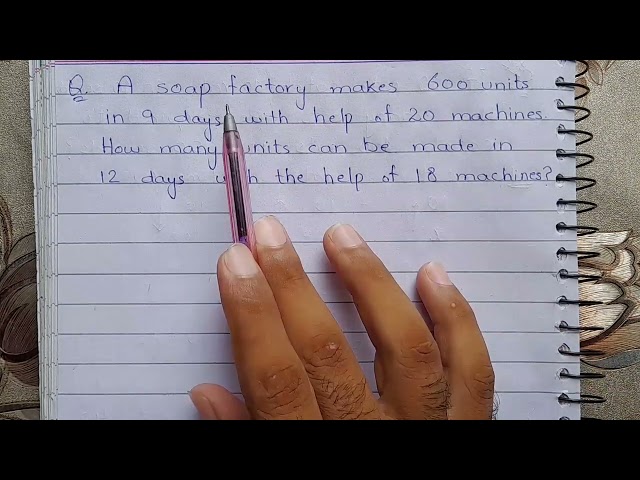 Q. A soap factory makes 600 units
in 9 days with help of 20 machines.
How many units can be made in
12 days with the help of 18 machines?